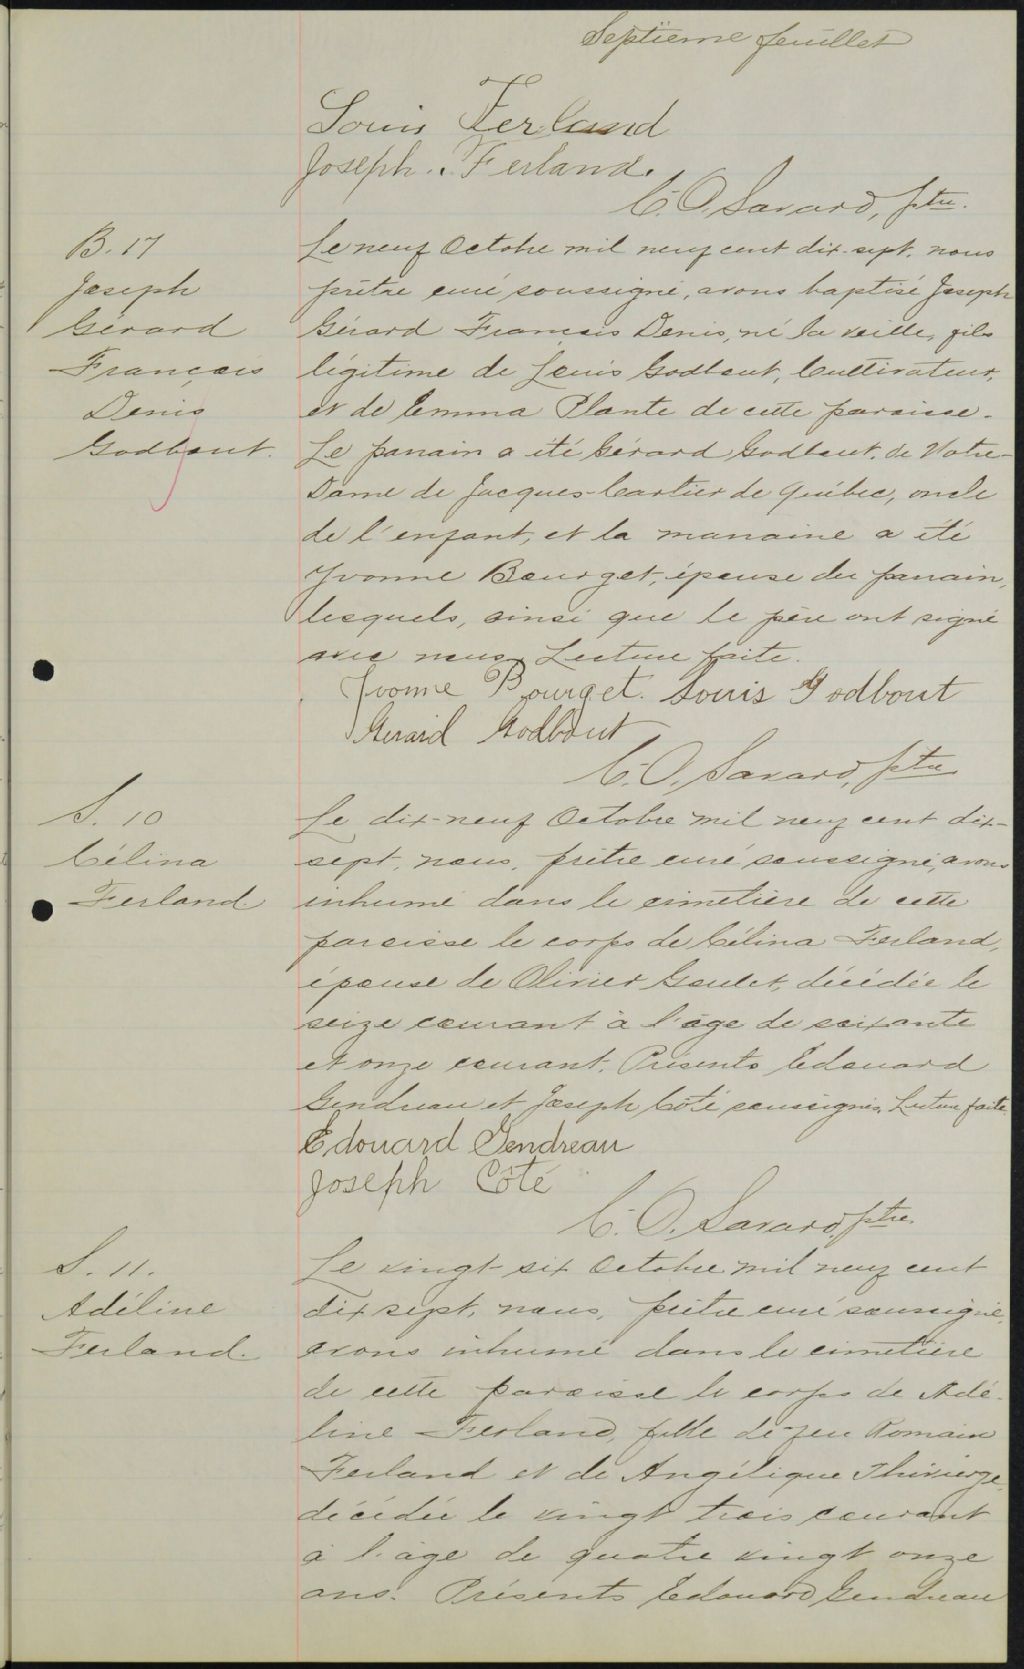 Septième feuillet
Louis Ferland
Joseph Ferland.
C. O. Savard, ptre.
B. 17
Joseph
Gérard
François
Denis
Godbout.
Le neuf Octobre mil neuf cent dix-sept, nous
prêtre curé soussigné, avons baptisé Joseph
Gérard François Denis, né la veille, fils
légitime de Louis Godbout, Cultivateur,
et de Emma Plante de cette paroisse.
Le parrain a été Gérard Godbout, de Notre-
Dame de Jacques-Cartier de Québec, oncle
de l'enfant, et la marraine a été
Yvonne Bourget, épouse du parrain,
lesquels, ainsi que le père ont signé
avec nous. Lecture faite.
Yvonne Bourget. Louis Godbout
Gerard Godbout
C. O. Savard, ptre
S. 10
Célina
Ferland
Le dix-neuf Octobre mil neuf cent dix-
sept, nous, prêtre curé soussigné, avons
inhumé dans le cimetière de cette
paroisse le corps de Célina Ferland,
épouse de Olivier Goulet, décédée le
seize courant à l'âge de soixante
et onze courant. Présents Edouard
Gendreau et Joseph Côté soussignés. Lecture faite.
Edouard Gendreau
Joseph Côté
C. O. Savard, ptre.
S. 11.
Adéline
Ferland.
Le vingt-six Octobre mil neuf cent
dix sept, nous, prêtre curé soussigné,
avons inhumé dans le cimetière
de cette paroisse le corps de Adé-
line Ferland, fille de feu Romain
Ferland et de Angélique Thivierge,
décédée le vingt trois courant
à l'âge de quatre vingt onze
ans. Présents Edouard Gendreau